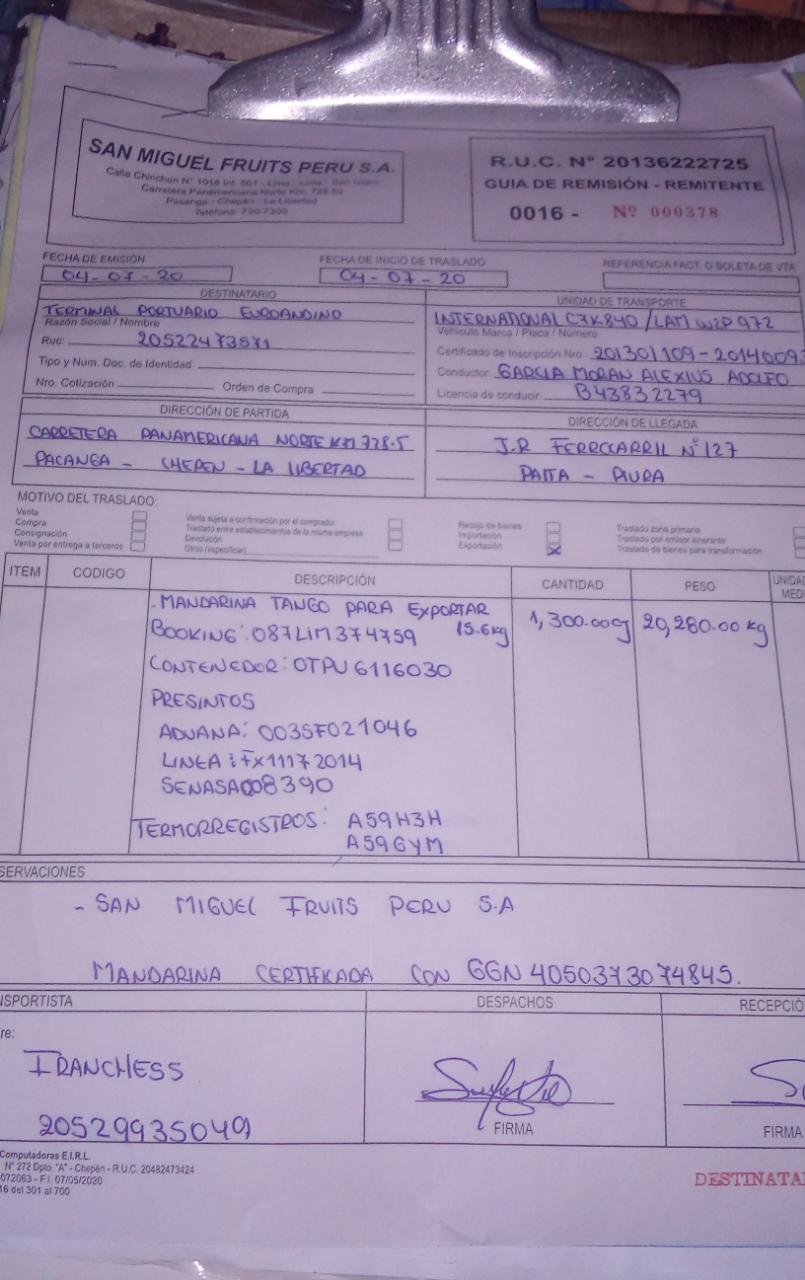 SAN MIGUEL FRUITS PERU S.A.
Calle Chinchón N° 1018 Int. 501 - Lima - Lima - San Isidro
Carretera Panamericana Norte Km. 728.50
Pacanga - Chepén - La Libertad
R.U.C. N° 20136222725
GUIA DE REMISIÓN - REMITENTE
0016 - Nº 000378
FECHA DE EMISIÓN
04-07-20
FECHA DE INICIO DE TRASLADO
04-07-20
REFERENCIA FACT. O BOLETA DE VTA.
DESTINATARIO
TERMINAL PORTUARIO EUROANDINO
Razón Social / Nombre
Ruc: 20522473571
Tipo y Num. Doc. de Identidad:
Nro. Cotización Orden de Compra
UNIDAD DE TRANSPORTE
INTERNATIONAL C7K840/LAM W2P972
Vehículo Marca / Placa / Número
Certificado de Inscripción Nro.: 201301109-2014009
Conductor: GARCIA MORAN ALEXIUS ADOLFO
Licencia de conducir B43832279
DIRECCIÓN DE PARTIDA
CARRETERA PANAMERICANA NORTE KM 728.5
PACANGA - CHEPEN - LA LIBERTAD
DIRECCIÓN DE LLEGADA
J.R FERROCARRIL N°127
PAITA - PIURA
MOTIVO DEL TRASLADO:
Venta
Compra
Consignación
Venta por entrega a terceros
Venta sujeta a confirmación por el comprador
Traslado entre establecimientos de la misma empresa
Devolución
Otros (especificar)
Recojo de bienes
Importación
Exportación X
Traslado zona primaria
Traslado por emisor itinerante
Traslado de bienes para transformación
ITEM CODIGO DESCRIPCIÓN CANTIDAD PESO UNIDA MED
- MANDARINA TANGO PARA EXPORTAR
BOOKING: 087LIM374759 15.6kg 1,300.00 20,280.00 kg
CONTENEDOR: OTPU 6116030
PRESINTOS
ADUANA: 003SF021046
LINEA: FX11172014
SENASA 008390
TERMORREGISTROS: A59H3H
A59GYM
SERVACIONES
- SAN MIGUEL FRUITS PERU S.A
MANDARINA CERTIFICADA CON GGN 4050373074845.
NSPORTISTA
re:
FRANCHESS
20529935049
DESPACHOS
FIRMA
RECEPCIÓ
FIRMA
Computadoras E.I.R.L.
N° 272 Dpto. "A" - Chepén - R.U.C. 20482473424
072063 - F.I. 07/05/2020
16 del 301 al 700
DESTINATA